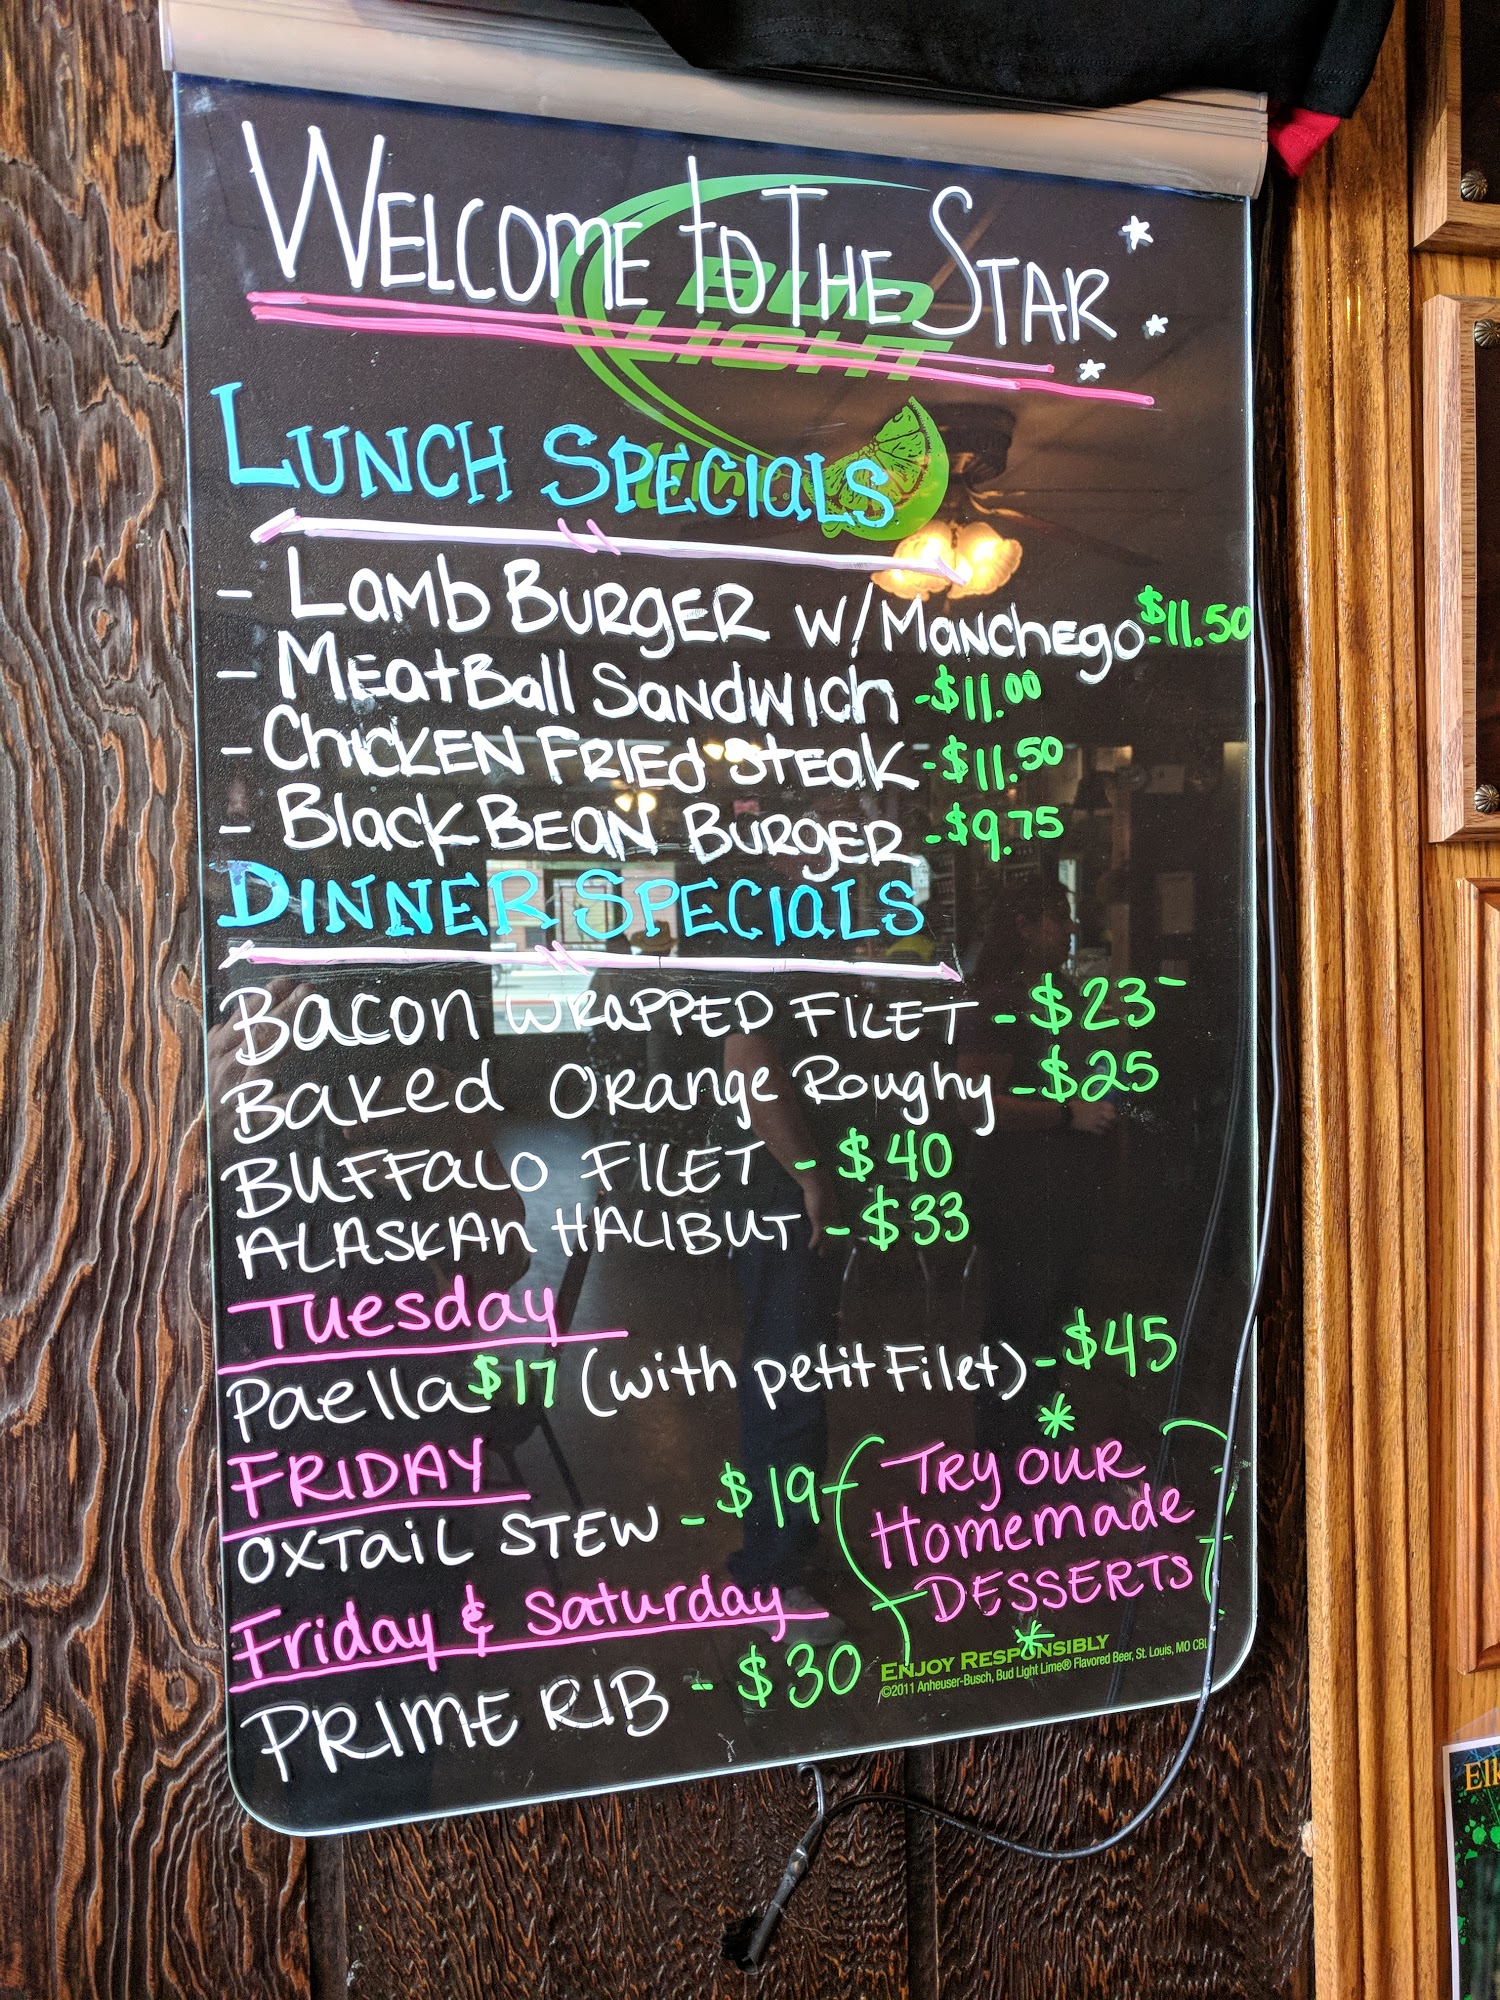 WELCOME TO THE STAR
BUD
LIGHT
LUNCH SPECIALS
- LAMB BURGER W/MANCHEGO $11.50
- MEATBALL SANDWICH - $11.00
- CHICKEN FRIED STEAK - $11.50
- BLACK BEAN BURGER - $9.75
DINNER SPECIALS
BACON WRAPPED FILET - $23-
BAKED ORANGE ROUGHY - $25
BUFFALO FILET - $40
ALASKAN HALIBUT - $33
Tuesday
Paella $17 (with petit Filet) - $45
FRIDAY
OXTAIL STEW - $19
TRY OUR
Homemade
DESSERTS
Friday & Saturday
PRIME RIB - $30
ENJOY RESPONSIBLY
©2011 Anheuser-Busch, Bud Light Lime® Flavored Beer, St. Louis, MO